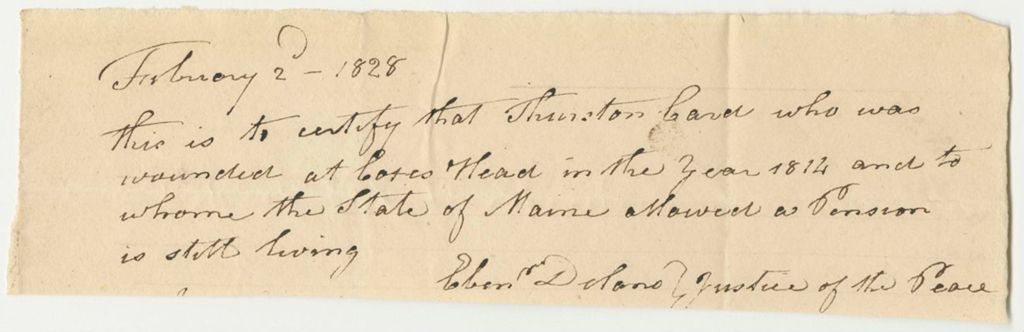 February 2d - 1828
this is to certify that Thurston Card who was
wounded at Coxes Head in the year 1814 and to
whome the State of Maine allowed a Pension
is still living
Ebenr Delano Justice of the Peace